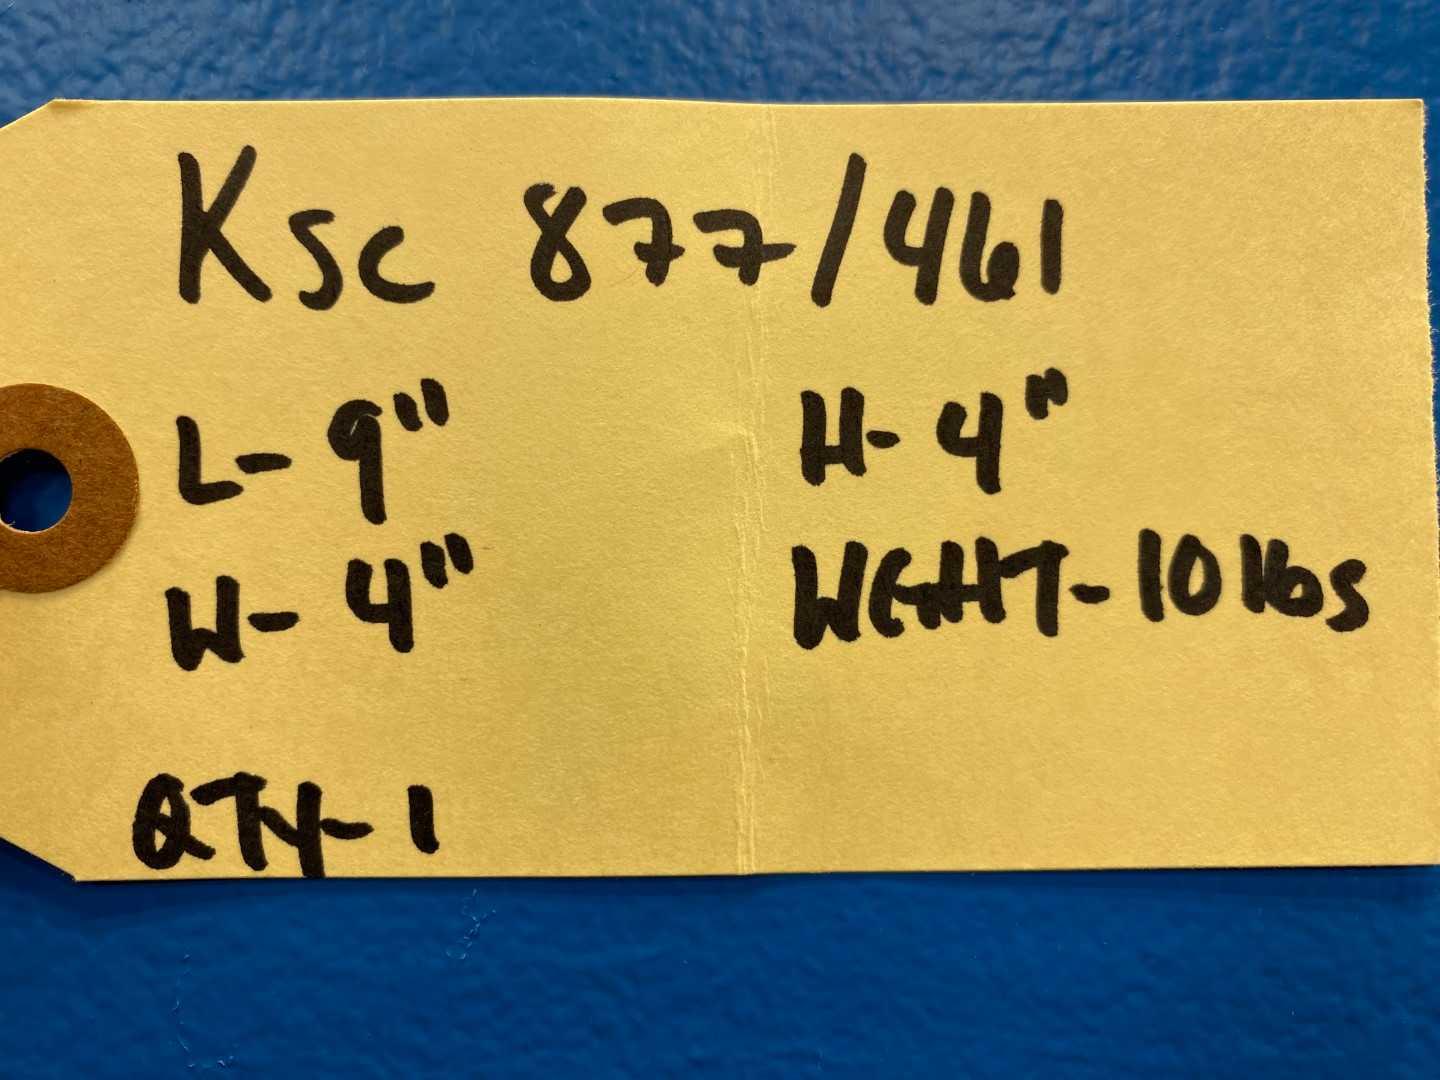 Ksc 877/461
L- 9" H- 4"
W- 4" WEHT- 10 lbs
QTY- 1